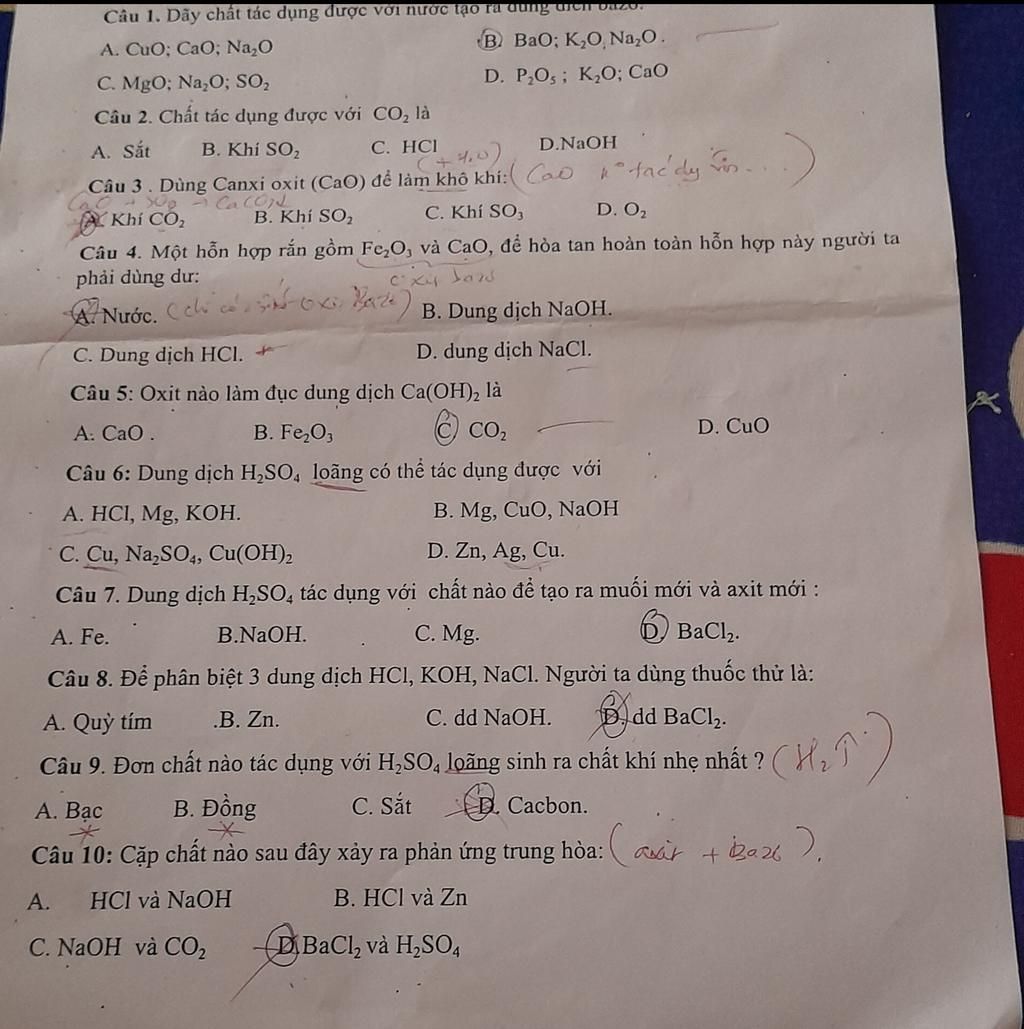 Câu 1. Dãy chất tác dụng được với nước tạo ra dung dịch bazơ:
A. CuO; CaO; Na₂O B. BaO; K₂O, Na₂O.
C. MgO; Na₂O; SO₂ D. P₂O₅ ; K₂O; CaO
Câu 2. Chất tác dụng được với CO₂ là
A. Sắt B. Khí SO₂ C. HCl D.NaOH
(+ H₂O)
Câu 3 . Dùng Canxi oxit (CaO) để làm khô khí: (CaO tác dụng
A. Khí CO₂ B. Khí SO₂ C. Khí SO₃ D. O₂
Câu 4. Một hỗn hợp rắn gồm Fe₂O₃ và CaO, để hòa tan hoàn toàn hỗn hợp này người ta
phải dùng dư:
A. Nước. B. Dung dịch NaOH.
C. Dung dịch HCl. + D. dung dịch NaCl.
Câu 5: Oxit nào làm đục dung dịch Ca(OH)₂ là
A. CaO . B. Fe₂O₃ C CO₂ D. CuO
Câu 6: Dung dịch H₂SO₄ loãng có thể tác dụng được với
A. HCl, Mg, KOH. B. Mg, CuO, NaOH
C. Cu, Na₂SO₄, Cu(OH)₂ D. Zn, Ag, Cu.
Câu 7. Dung dịch H₂SO₄ tác dụng với chất nào để tạo ra muối mới và axit mới :
A. Fe. B.NaOH. C. Mg. D. BaCl₂.
Câu 8. Để phân biệt 3 dung dịch HCl, KOH, NaCl. Người ta dùng thuốc thử là:
A. Quỳ tím .B. Zn. C. dd NaOH. D. dd BaCl₂.
Câu 9. Đơn chất nào tác dụng với H₂SO₄ loãng sinh ra chất khí nhẹ nhất ? (H₂↑)
A. Bạc B. Đồng C. Sắt D. Cacbon.
Câu 10: Cặp chất nào sau đây xảy ra phản ứng trung hòa: (axit + Bazơ).
A. HCl và NaOH B. HCl và Zn
C. NaOH và CO₂ D. BaCl₂ và H₂SO₄